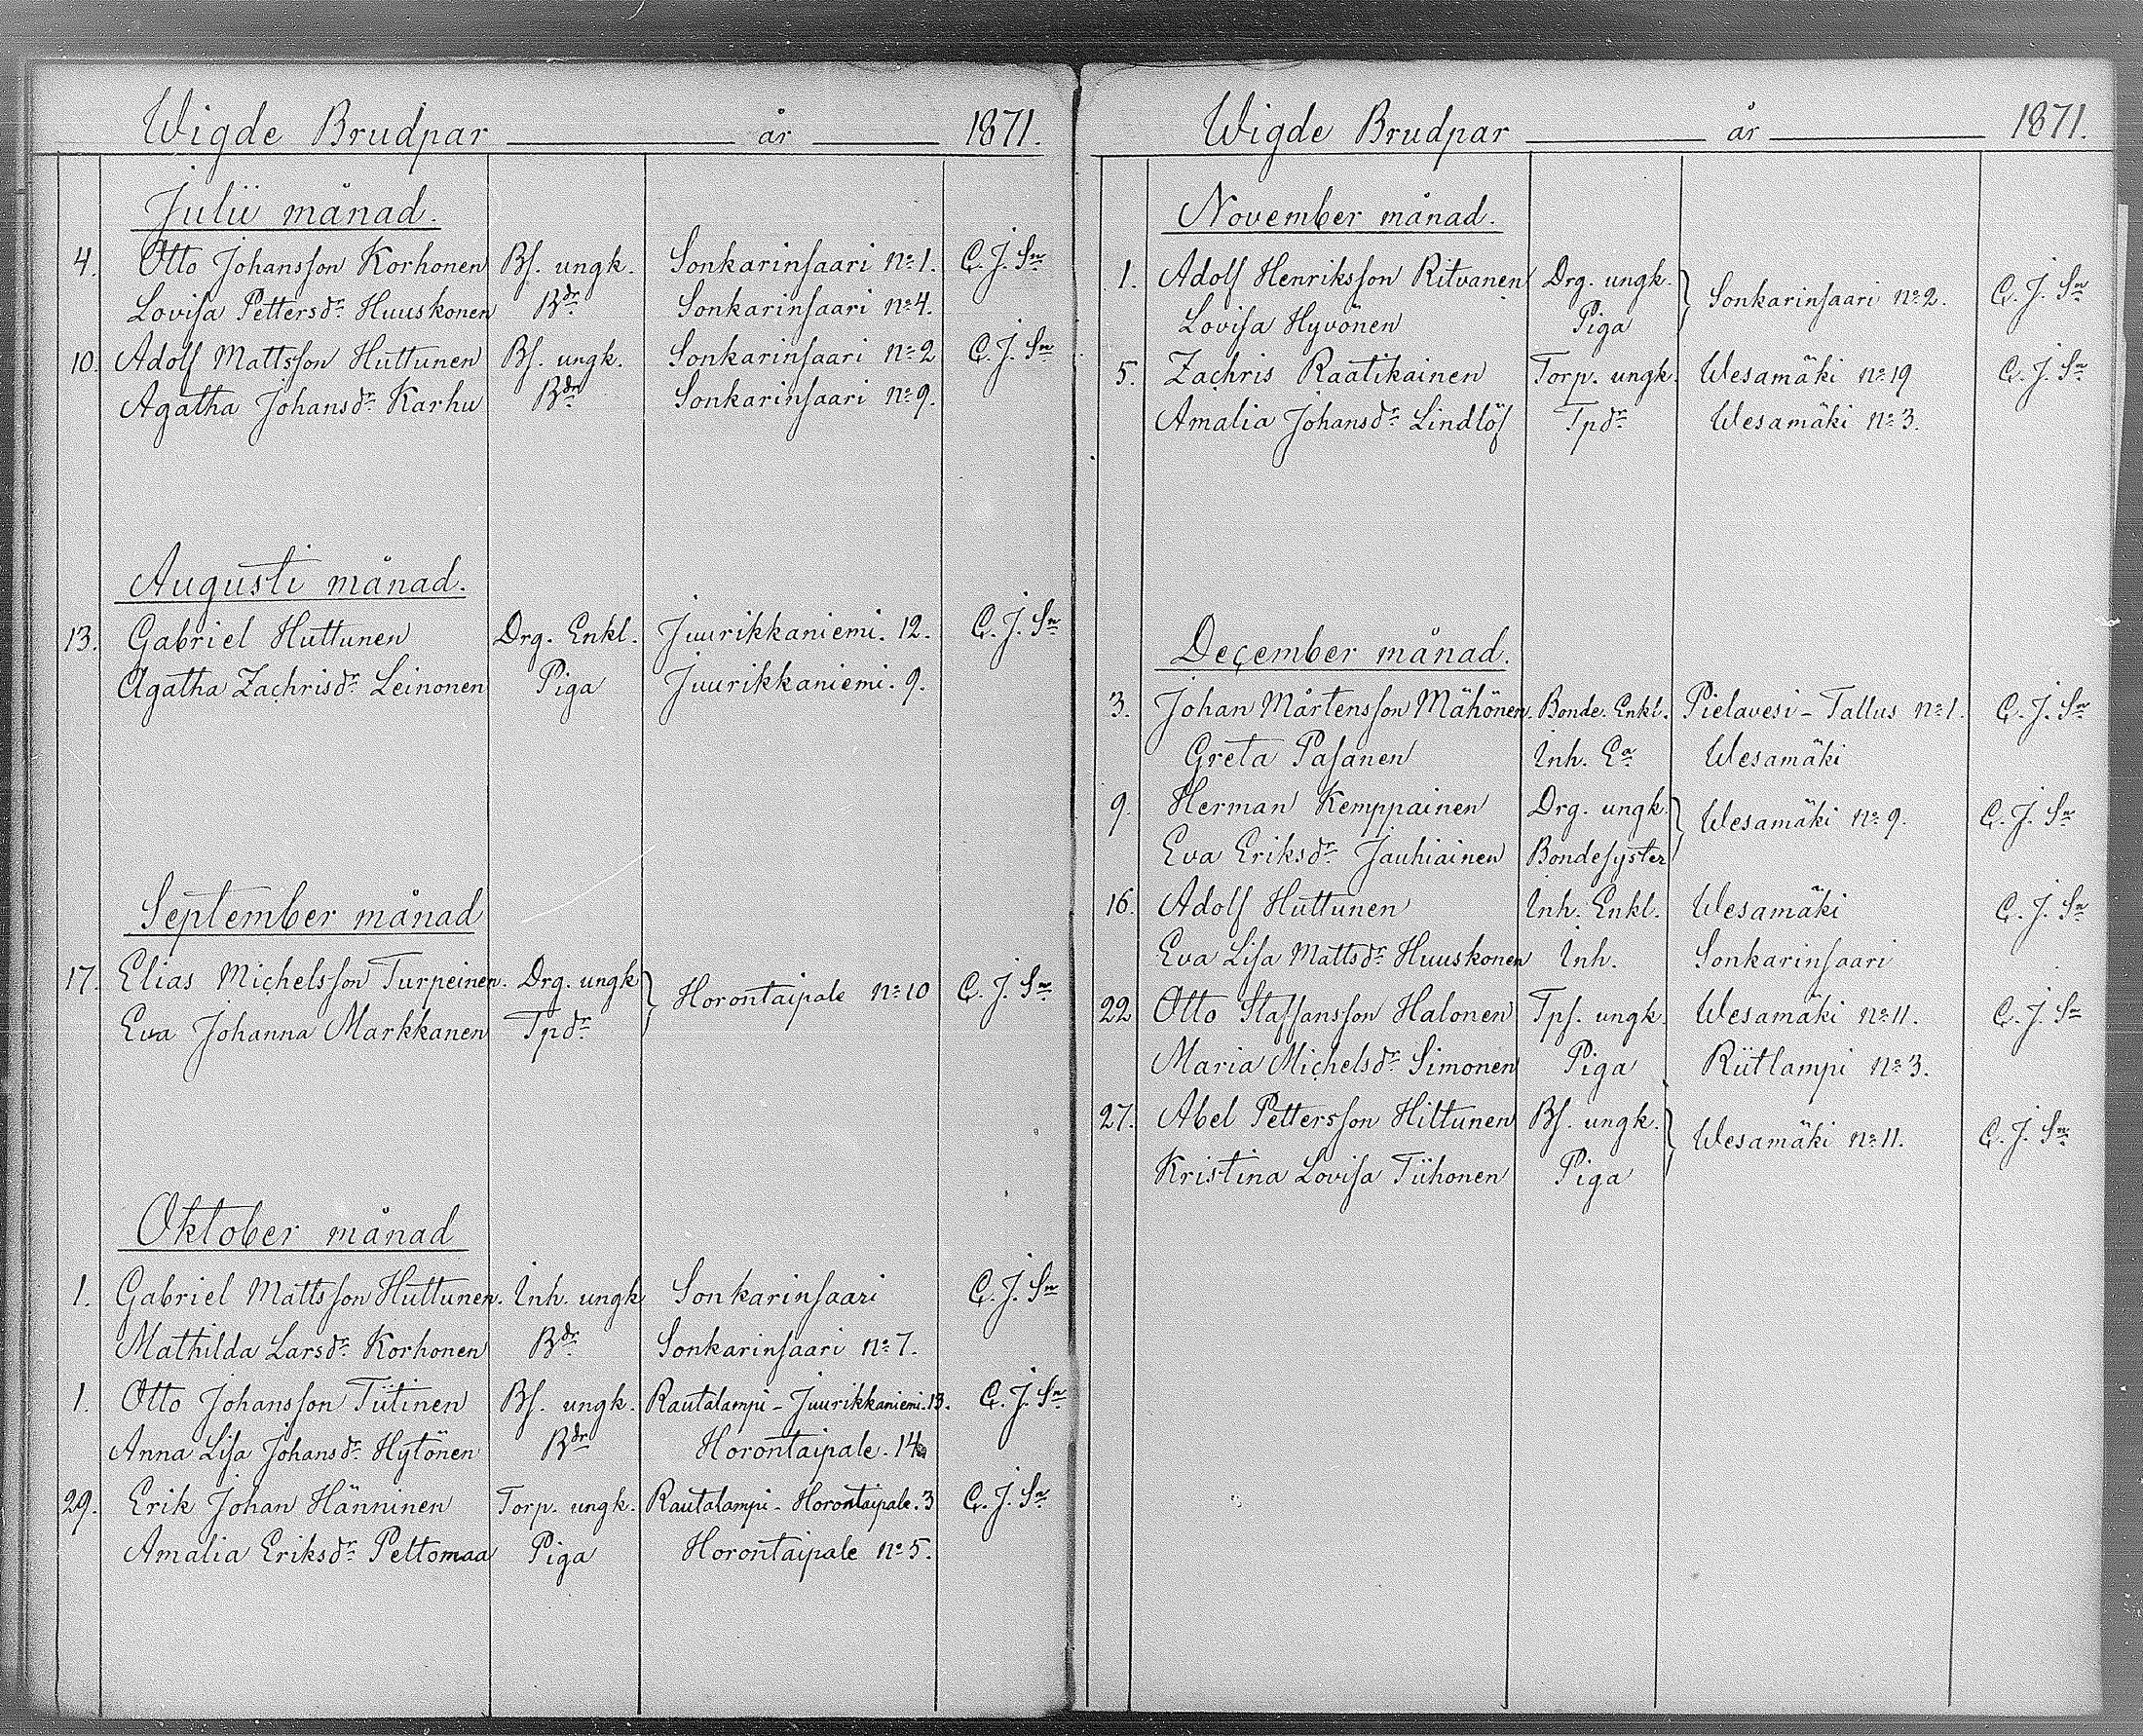 Wigde Brudpar år 1871.
Julii månad.
4. Otto Johansson Korhonen Bs. ungk. Sonkarinsaari No 1. C. J. Sn
Lovisa Pettersdr Huuskonen Bdr Sonkarinsaari No 4.
10. Adolf Mattsson Huttunen Bs. ungk. Sonkarinsaari No 2 C. J. Sn
Agatha Johansdr Karhu Bdr Sonkarinsaari No 9.
Augusti månad.
13. Gabriel Huttunen Drg. Enkl. Juurikkaniemi. 12. C. J. Sn
Agatha Zachrisdr Leinonen Piga Juurikkaniemi. 9.
September månad
17. Elias Michelsson Turpeinen. Drg. ungk } Horontaipale No 10 C. J. Sn
Eva Johanna Markkanen Tpdr
Oktober månad
1. Gabriel Mattsson Huttunen. Inh. ungk Sonkarinsaari C. J. Sn
Mathilda Larsdr Korhonen Bdr Sonkarinsaari No 7.
1. Otto Johansson Tiitinen Bs. ungk. Rautalampi - Juurikkaniemi. 13. C. J. Sn
Anna Lisa Johansdr Hytönen Bdr Horontaipale. 14
29. Erik Johan Hänninen Torp. ungk. Rautalampi - Horontaipale. 3 C. J. Sn
Amalia Eriksdr Peltomaa Piga Horontaipale No 5.
Wigde Brudpar år 1871.
November månad.
1. Adolf Henriksson Ritvanen Drg. ungk. } Sonkarinsaari No 2. C. J. Sn
Lovisa Hyvönen Piga
5. Zachris Raatikainen Torp. ungk. Wesamäki No 19 C. J. Sn
Amalia Johansdr Lindlöf Tpdr Wesamäki No 3.
December månad.
3. Johan Mårtensson Mähönen. Bonde. Enkl. Pielavesi - Tallus No 1. C. J. Sn
Greta Pasanen Inh. Ea Wesamäki
9. Herman Kemppainen Drg. ungk. } Wesamäki No 9. C. J. Sn
Eva Eriksdr Jauhiainen Bondesyster
16. Adolf Huttunen Inh. Enkl. Wesamäki C. J. Sn
Eva Lisa Mattsdr Huuskonen Inh. Sonkarinsaari
22 Otto Staffansson Halonen Tps. ungk. Wesamäki No 11. C. J. Sn
Maria Michelsdr Simonen Piga Riitlampi No 3.
27. Abel Pettersson Hiltunen Bs. ungk. } Wesamäki No 11. C. J. Sn
Kristina Lovisa Tiihonen Piga